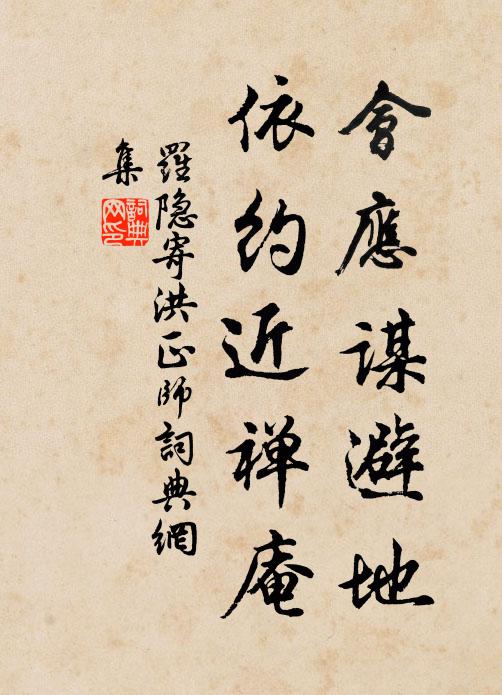 會應謀避地
依約近禅庵
羅隐寄洪正師詞典網
集
詞典
网印